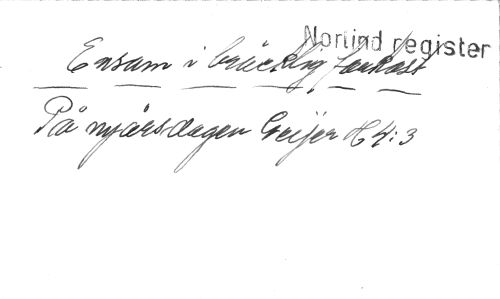 Norlind register
Ensam i bräcklig farkost
På nyårsdagen Geijer H 4:3